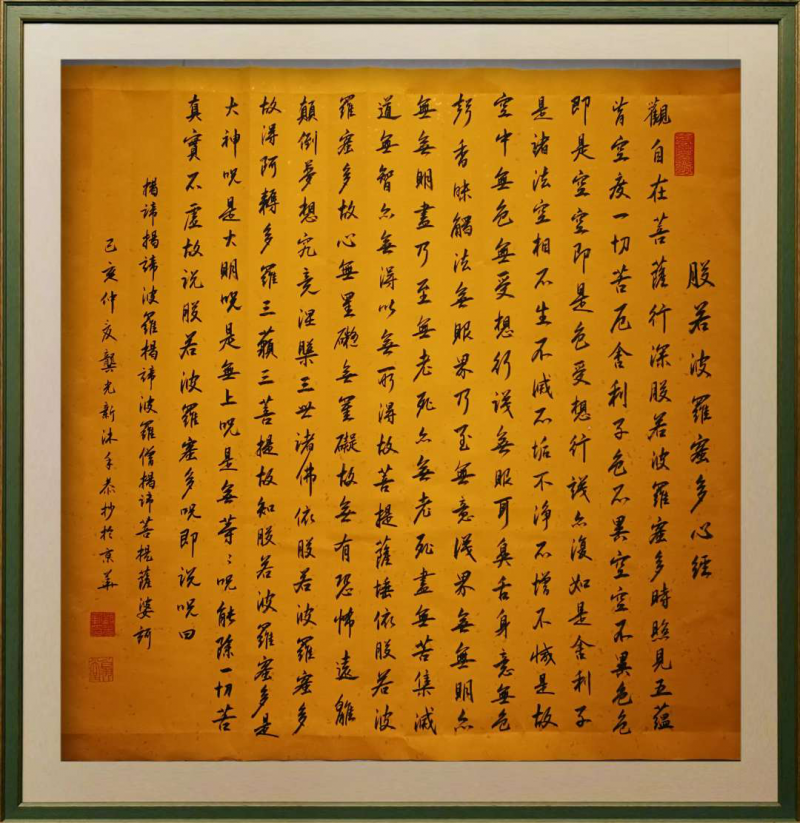 般若波羅蜜多心經
觀自在菩薩行深般若波羅蜜多時照見五蘊
皆空度一切苦厄舍利子色不異空空不異色色
即是空空即是色受想行識亦復如是舍利子
是諸法空相不生不滅不垢不淨不增不減是故
空中無色無受想行識無眼耳鼻舌身意無色
聲香味觸法無眼界乃至無意識界無無明亦
無無明盡乃至無老死亦無老死盡無苦集滅
道無智亦無得以無所得故菩提薩埵依般若波
羅蜜多故心無罣礙無罣礙故無有恐怖遠離
顛倒夢想究竟涅槃三世諸佛依般若波羅蜜多
故得阿耨多羅三藐三菩提故知般若波羅蜜多是
大神呪是大明呪是無上呪是無等〻呪能除一切苦
真實不虛故说般若波羅蜜多呪即说呪曰
揭諦揭諦波羅揭諦波羅僧揭諦菩提薩婆訶
己亥仲夏龔光新沐手恭抄於京華